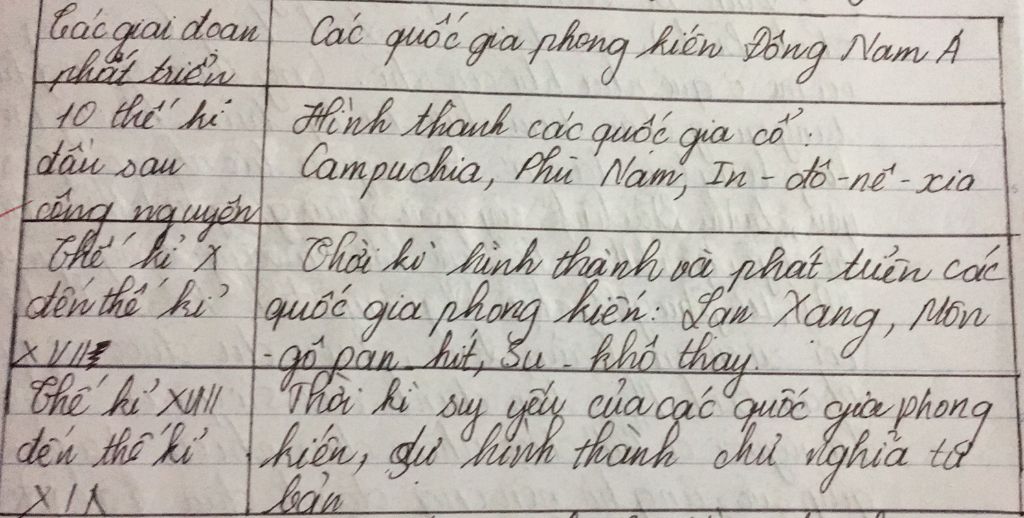 Các giai đoạn
phát triển
Các quốc gia phong kiến Đông Nam Á
10 thế kỉ
đầu sau
công nguyên
Hình thành các quốc gia cổ:
Campuchia, Phù Nam, In - đô - nê - xia
Thế kỉ X
đến thế kỉ
XVII
Thời kì hình thành và phát triển các
quốc gia phong kiến: Lan Xang, Môn
- gô pan - hít, Su - khô thay.
Thế kỉ XVIII
đến thế kỉ
XIX
Thời kì suy yếu của các quốc gia phong
kiến, sự hình thành chủ nghĩa tư
bản